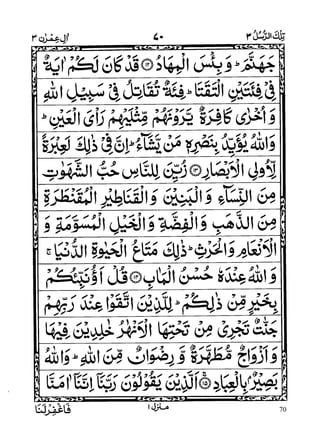 تِلْكَ الرُّسُلُ ٣ ٧٠ اٰلِ عِمْرٰن ٣
جَهَنَّمَ ؕ وَ بِئْسَ الْمِهَادُ ۝۱۲ قَدْ كَانَ لَكُمْ اٰيَةٌ
فِیْ فِئَتَيْنِ الْتَقَتَا ؕ فِئَةٌ تُقَاتِلُ فِیْ سَبِيْلِ اللّٰهِ
وَ اُخْرٰى كَافِرَةٌ يَّرَوْنَهُمْ مِّثْلَيْهِمْ رَاْیَ الْعَيْنِ ؕ
وَ اللّٰهُ يُؤَيِّدُ بِنَصْرِهٖ مَنْ يَّشَآءُ ؕ اِنَّ فِیْ ذٰلِكَ لَعِبْرَةً
لِّاُولِی الْاَبْصَارِ ۝۱۳ زُيِّنَ لِلنَّاسِ حُبُّ الشَّهَوٰتِ
مِنَ النِّسَآءِ وَ الْبَنِيْنَ وَ الْقَنَاطِيْرِ الْمُقَنْطَرَةِ
مِنَ الذَّهَبِ وَ الْفِضَّةِ وَ الْخَيْلِ الْمُسَوَّمَةِ وَ
الْاَنْعَامِ وَ الْحَرْثِ ؕ ذٰلِكَ مَتَاعُ الْحَيٰوةِ الدُّنْيَا ۚ
وَ اللّٰهُ عِنْدَهٗ حُسْنُ الْمَاٰبِ ۝۱۴ قُلْ اَؤُنَبِّئُكُمْ
بِخَيْرٍ مِّنْ ذٰلِكُمْ ؕ لِلَّذِيْنَ اتَّقَوْا عِنْدَ رَبِّهِمْ
جَنّٰتٌ تَجْرِیْ مِنْ تَحْتِهَا الْاَنْهٰرُ خٰلِدِيْنَ فِيْهَا
وَ اَزْوَاجٌ مُّطَهَّرَةٌ وَّ رِضْوَانٌ مِّنَ اللّٰهِ ؕ وَ اللّٰهُ
بَصِيْرٌۢ بِالْعِبَادِ ۝۱۵ اَلَّذِيْنَ يَقُوْلُوْنَ رَبَّنَاۤ اِنَّنَاۤ اٰمَنَّا
منزل ۱ فَاغْفِرْ لَنَا
70